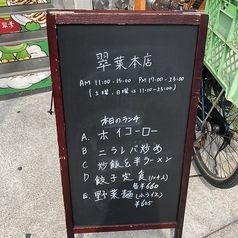 翠葉本店
AM 11:00-15:00 PM 17:00-23:00
(土曜、日曜は11:00-23:00)
本日のランチ
A. ホイコーロー
B. ニラレバ炒め
C 炒飯と半ラーメン
D 餃子定食(10ケ入)
各¥660
E. 野菜麺(小ライス)
¥605